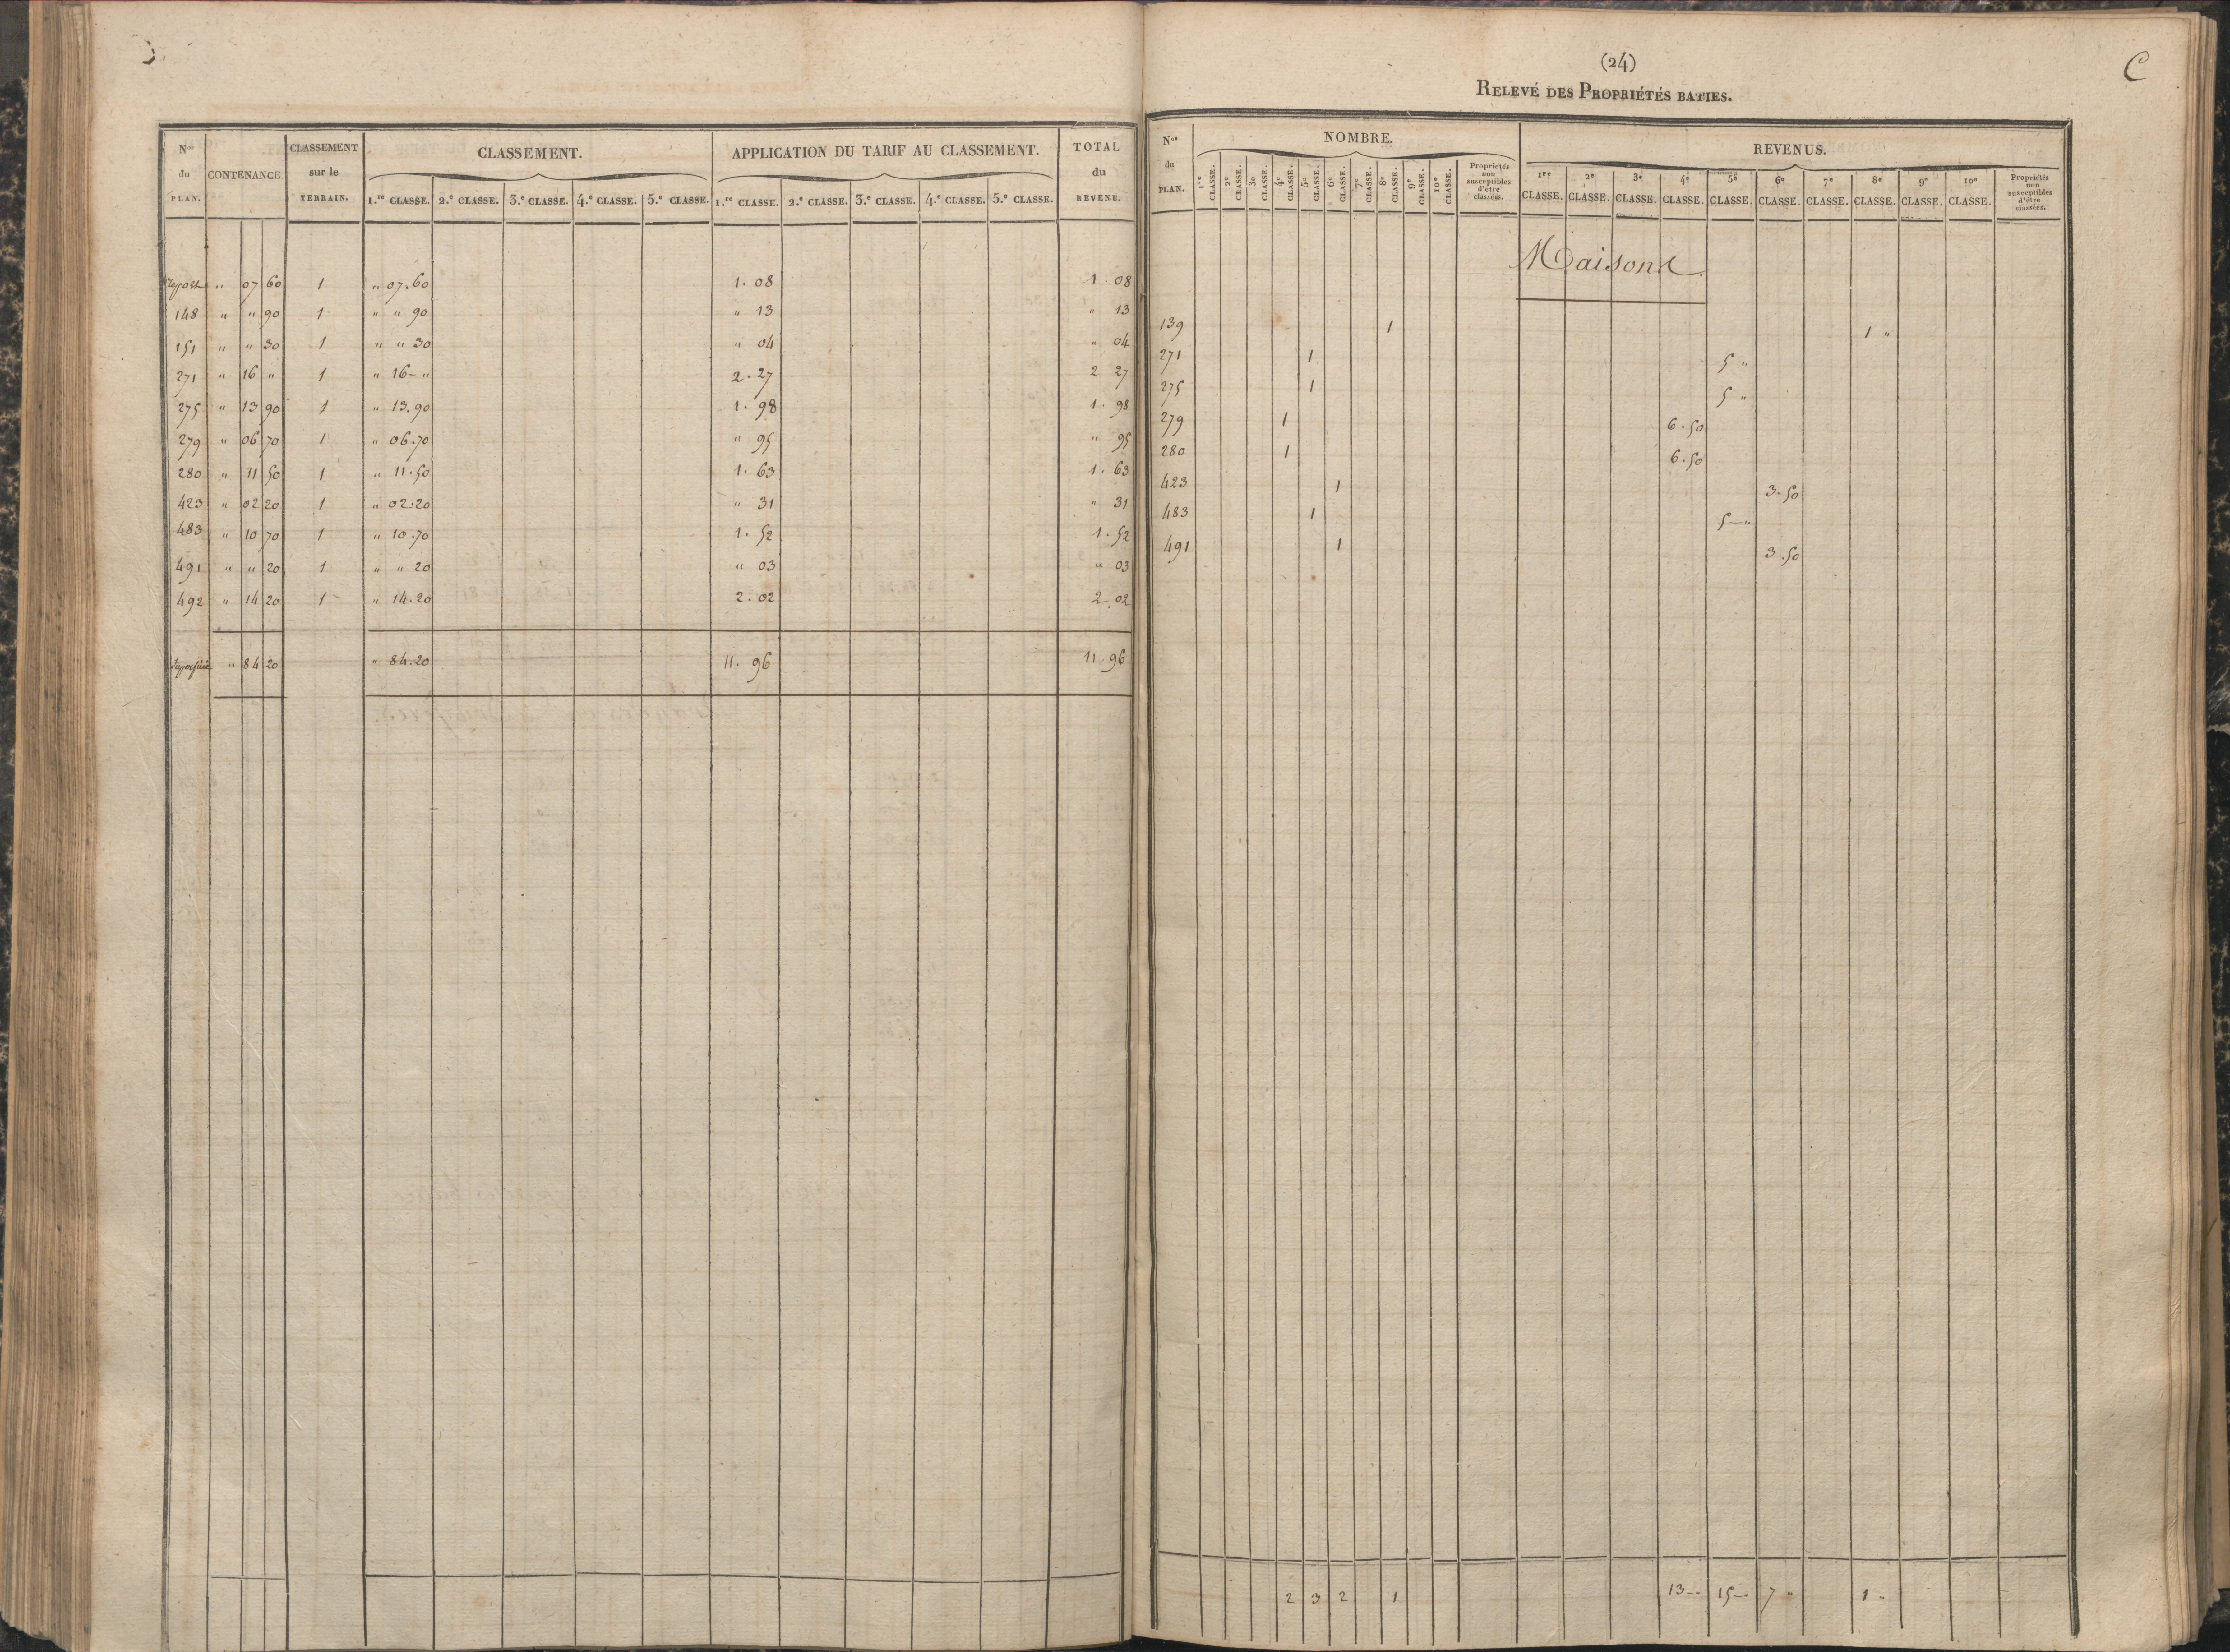 N.os du PLAN. CONTENANCE CLASSEMENT sur le TERRAIN. CLASSEMENT. APPLICATION DU TARIF AU CLASSEMENT. TOTAL du REVENU.
1.re CLASSE. 2.e CLASSE. 3.e CLASSE. 4.e CLASSE. 5.e CLASSE. 1.re CLASSE. 2.e CLASSE. 3.e CLASSE. 4.e CLASSE. 5.e CLASSE.
Report " 07 60 1 " 07.60 1. 08 1. 08
148 " " 90 1 " " 90 " 13 " 13
151 " " 30 1 " " 30 " 04 " 04
271 " 16 " 1 " 16-" 2. 27 2 27
275 " 13 90 1 " 13.90 1. 98 1. 98
279 " 06 70 1 " 06.70 " 95 " 95
280 " 11 50 1 " 11.50 1. 63 1. 63
423 " 02 20 1 " 02.20 " 31 " 31
483 " 10 70 1 " 10.70 1. 52 1. 52
491 " " 20 1 " " 20 " 03 " 03
492 " 14 20 1 " 14.20 2. 02 2. 02
" 84 20 " 84.20 11. 96 11. 96
(24)
C
RELEVÉ DES PROPRIÉTÉS BATIES.
N.os du PLAN. NOMBRE. REVENUS.
1re CLASSE. 2e CLASSE. 3e CLASSE. 4e CLASSE. 5e CLASSE. 6e CLASSE. 7e CLASSE. 8e CLASSE. 9e CLASSE. 10e CLASSE. Propriétés non susceptibles d'être classées. 1re CLASSE. 2e CLASSE. 3e CLASSE. 4e CLASSE. 5e CLASSE. 6e CLASSE. 7e CLASSE. 8e CLASSE. 9e CLASSE. 10e CLASSE. Propriétés non susceptibles d'être classées.
Maisons.
139 1 1 "
271 1 5 "
275 1 5 "
279 1 6.50
280 1 6.50
423 1 3.50
483 1 5-"
491 1 3.50
2 3 2 1 13-" 15-" 7 " 1 "